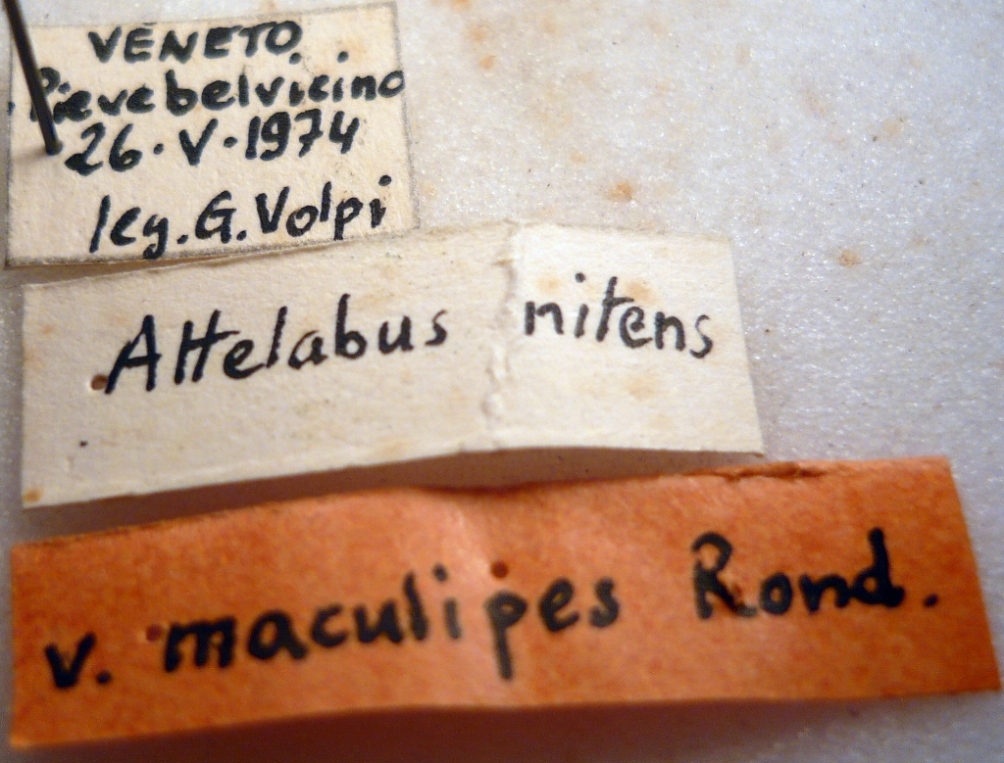 VENETO.
Pievebelvicino
26.V.1974
leg. G. Volpi
Attelabus nitens
v. maculipes Rond.